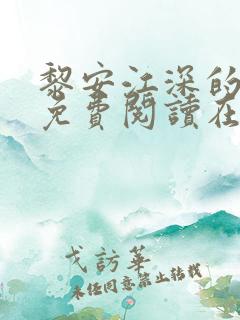 黎安江深的
免費閱讀在
戈訪華
未经同意禁止转载